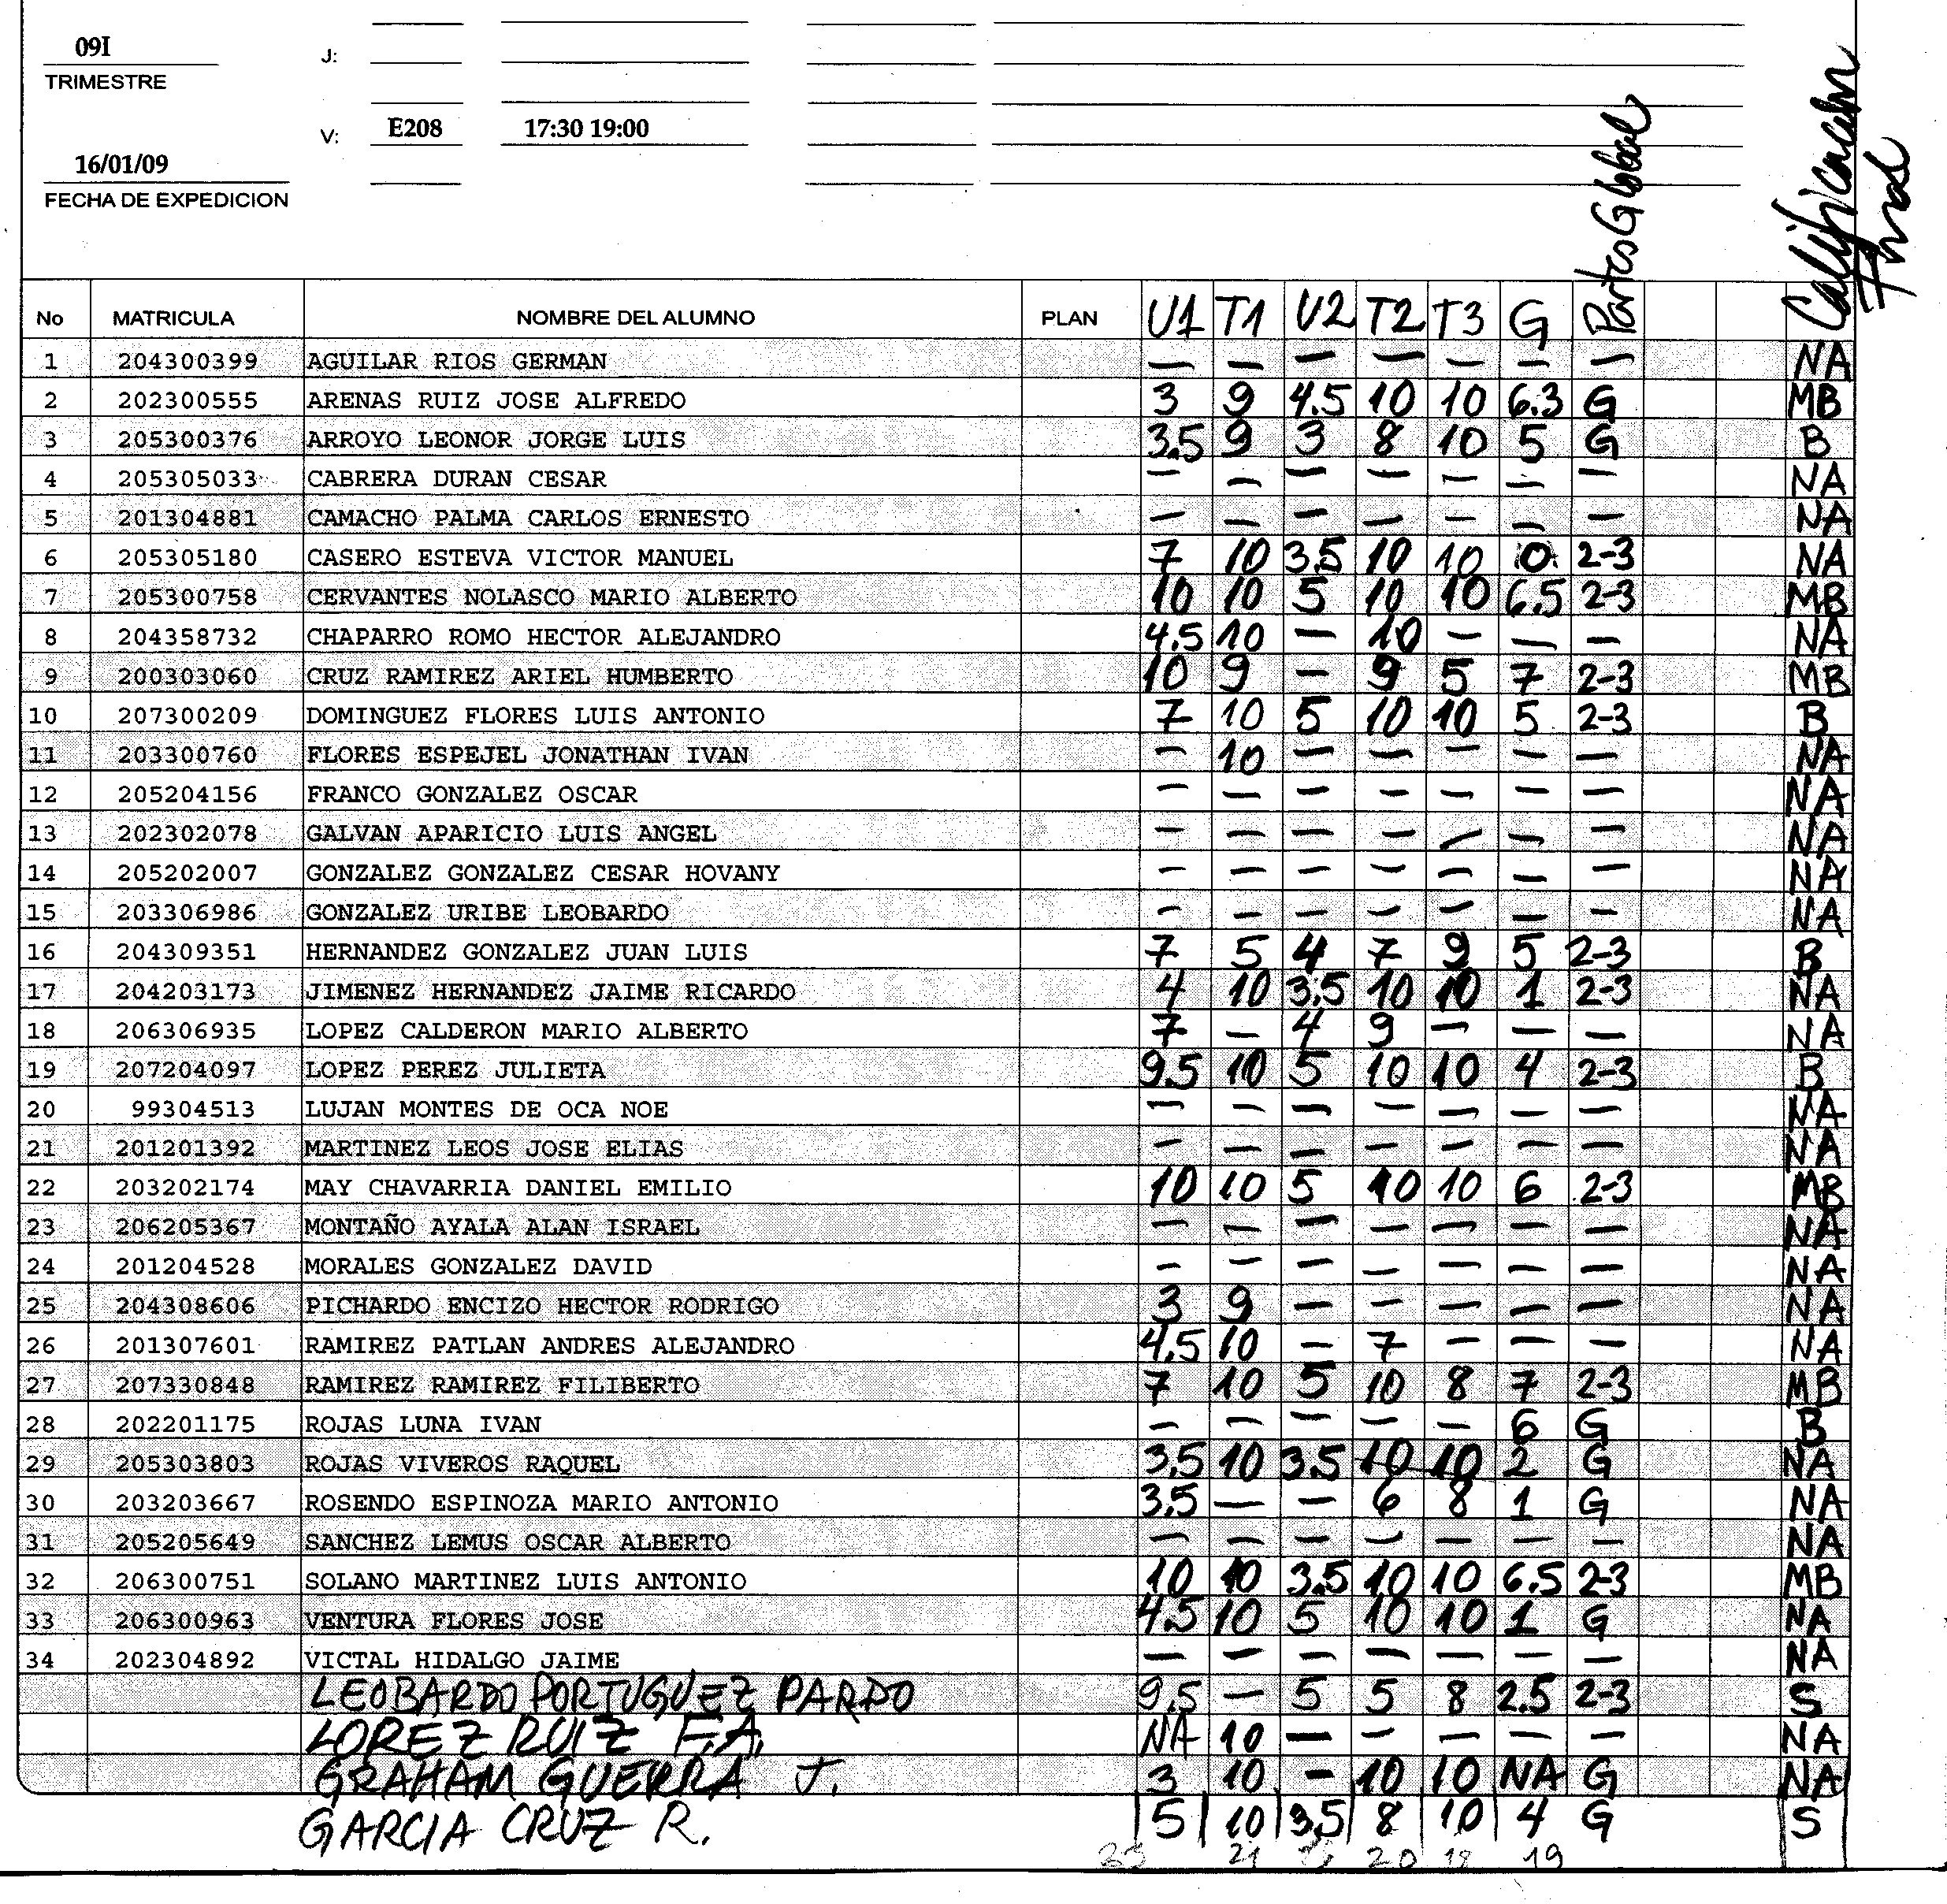 09I
TRIMESTRE
J:
V: E208 17:30 19:00
16/01/09
FECHA DE EXPEDICION
Partes Global
Calificación Final
No MATRICULA NOMBRE DEL ALUMNO PLAN U1 T1 U2 T2 T3 G
1 204300399 AGUILAR RIOS GERMAN — — — — — — — NA
2 202300555 ARENAS RUIZ JOSE ALFREDO 3 9 4.5 10 10 6.3 G MB
3 205300376 ARROYO LEONOR JORGE LUIS 3.5 9 3 8 10 5 G B
4 205305033 CABRERA DURAN CESAR — — — — — — — NA
5 201304881 CAMACHO PALMA CARLOS ERNESTO — — — — — — — NA
6 205305180 CASERO ESTEVA VICTOR MANUEL 7 10 3.5 10 10 0 2-3 NA
7 205300758 CERVANTES NOLASCO MARIO ALBERTO 10 10 5 10 10 6.5 2-3 MB
8 204358732 CHAPARRO ROMO HECTOR ALEJANDRO 4.5 10 — 10 — — — NA
9 200303060 CRUZ RAMIREZ ARIEL HUMBERTO 10 9 — 9 5 7 2-3 MB
10 207300209 DOMINGUEZ FLORES LUIS ANTONIO 7 10 5 10 10 5 2-3 B
11 203300760 FLORES ESPEJEL JONATHAN IVAN — 10 — — — — — NA
12 205204156 FRANCO GONZALEZ OSCAR — — — — — — — NA
13 202302078 GALVAN APARICIO LUIS ANGEL — — — — — — — NA
14 205202007 GONZALEZ GONZALEZ CESAR HOVANY — — — — — — — NA
15 203306986 GONZALEZ URIBE LEOBARDO — — — — — — — NA
16 204309351 HERNANDEZ GONZALEZ JUAN LUIS 7 5 4 7 9 5 2-3 B
17 204203173 JIMENEZ HERNANDEZ JAIME RICARDO 4 10 3.5 10 10 1 2-3 NA
18 206306935 LOPEZ CALDERON MARIO ALBERTO 7 — 4 9 — — — NA
19 207204097 LOPEZ PEREZ JULIETA 9.5 10 5 10 10 4 2-3 B
20 99304513 LUJAN MONTES DE OCA NOE — — — — — — — NA
21 201201392 MARTINEZ LEOS JOSE ELIAS — — — — — — — NA
22 203202174 MAY CHAVARRIA DANIEL EMILIO 10 10 5 10 10 6 2-3 MB
23 206205367 MONTAÑO AYALA ALAN ISRAEL — — — — — — — NA
24 201204528 MORALES GONZALEZ DAVID — — — — — — — NA
25 204308606 PICHARDO ENCIZO HECTOR RODRIGO 3 9 — — — — — NA
26 201307601 RAMIREZ PATLAN ANDRES ALEJANDRO 4.5 10 — 7 — — — NA
27 207330848 RAMIREZ RAMIREZ FILIBERTO 7 10 5 10 8 7 2-3 MB
28 202201175 ROJAS LUNA IVAN — — — — — 6 G B
29 205303803 ROJAS VIVEROS RAQUEL 3.5 10 3.5 10 10 2 G NA
30 203203667 ROSENDO ESPINOZA MARIO ANTONIO 3.5 — — 6 8 1 G NA
31 205205649 SANCHEZ LEMUS OSCAR ALBERTO — — — — — — — NA
32 206300751 SOLANO MARTINEZ LUIS ANTONIO 10 10 3.5 10 10 6.5 2-3 MB
33 206300963 VENTURA FLORES JOSE 4.5 10 5 10 10 1 G NA
34 202304892 VICTAL HIDALGO JAIME — — — — — — — NA
LEOBARDO PORTUGUEZ PARDO 9.5 — 5 5 8 2.5 2-3 S
LOREZ RUIZ F.A. NA 10 — — — — — NA
GRAHAM GUERRA J. 3 10 — 10 10 NA G NA
GARCIA CRUZ R. 5 10 3.5 8 10 4 G S
21 20 18 19